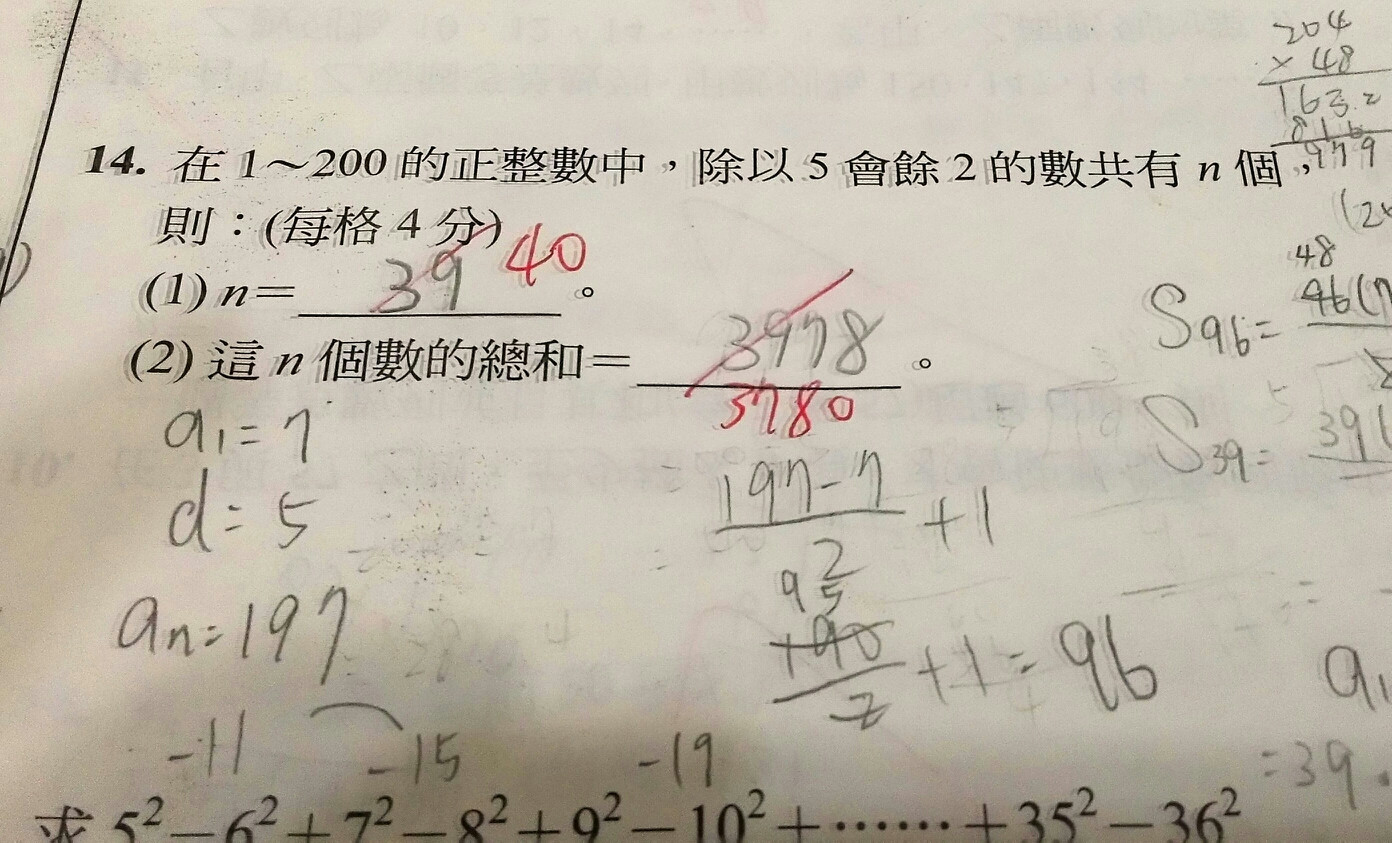 204
× 48
1632
816
979
14. 在 1～200 的正整數中，除以 5 會餘 2 的數共有 n 個，
則：(每格 4 分)
(1) n= 39 40 。
(2) 這 n 個數的總和= 3978 。
3780
a₁= 7
d= 5
aₙ= 197
= 197-7 +1
2
95
190
2
+1= 96
48
S₉₆= 96(7
S₃₉= 39(
a₁
=39
-11 -15 -19
求 5²－6²＋7²－8²＋9²－10²＋……＋35²－36²